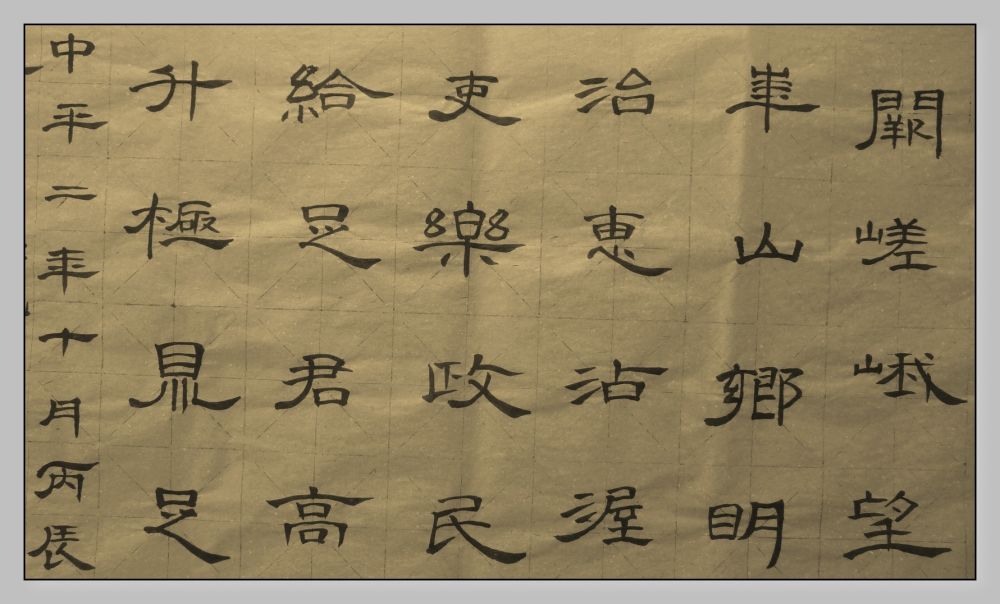 闕嵯峨望
華山鄉明
治惠沾渥
吏樂政民
給足君高
升極鼎足
中平二年十月丙辰